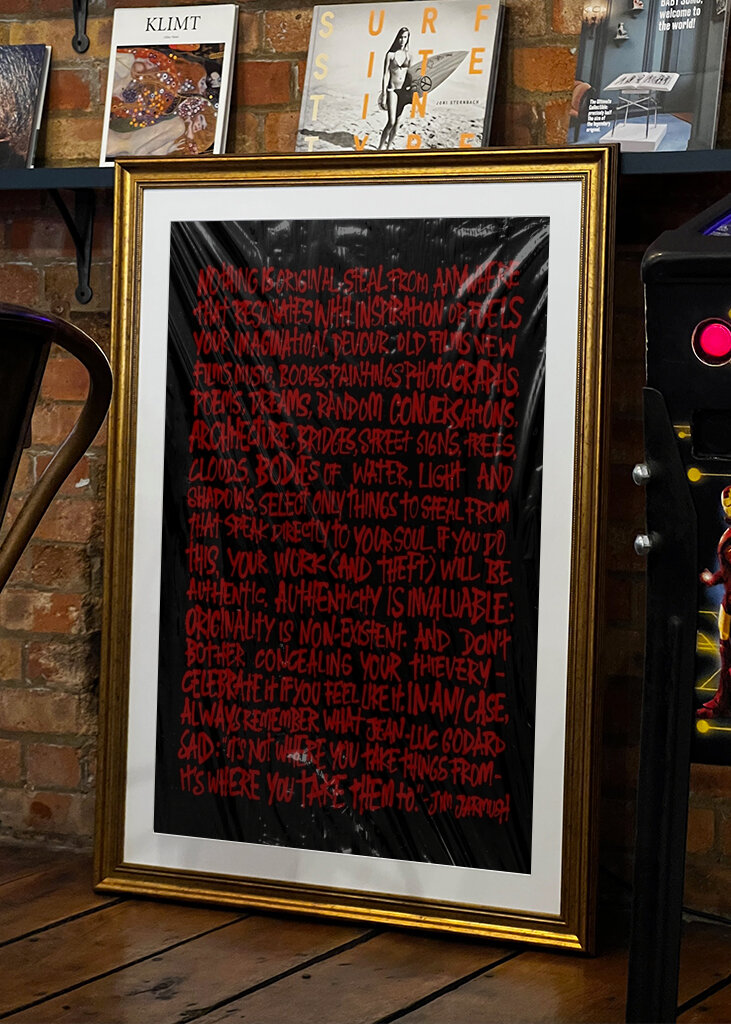 KLIMT
SURF
SITE
TIN
TYPE
JONI STERNBACK
welcome to
the world!
The Ultimate
Collectible:
precisely half
the size of
the legendary
original.
NOTHING IS ORIGINAL. STEAL FROM ANYWHERE
THAT RESONATES WITH INSPIRATION OR FUELS
YOUR IMAGINATION. DEVOUR OLD FILMS NEW
FILMS, MUSIC, BOOKS, PAINTINGS PHOTOGRAPHS,
POEMS, DREAMS, RANDOM CONVERSATIONS,
ARCHITECTURE, BRIDGES, STREET SIGNS, TREES,
CLOUDS, BODIES OF WATER, LIGHT AND
SHADOWS. SELECT ONLY THINGS TO STEAL FROM
THAT SPEAK DIRECTLY TO YOUR SOUL. IF YOU DO
THIS, YOUR WORK (AND THEFT) WILL BE
AUTHENTIC. AUTHENTICITY IS INVALUABLE;
ORIGINALITY IS NON-EXISTENT. AND DON'T
BOTHER CONCEALING YOUR THIEVERY -
CELEBRATE IT IF YOU FEEL LIKE IT. IN ANY CASE,
ALWAYS REMEMBER WHAT JEAN-LUC GODARD
SAID: "IT'S NOT WHERE YOU TAKE THINGS FROM-
IT'S WHERE YOU TAKE THEM TO." - JIM JARMUSH